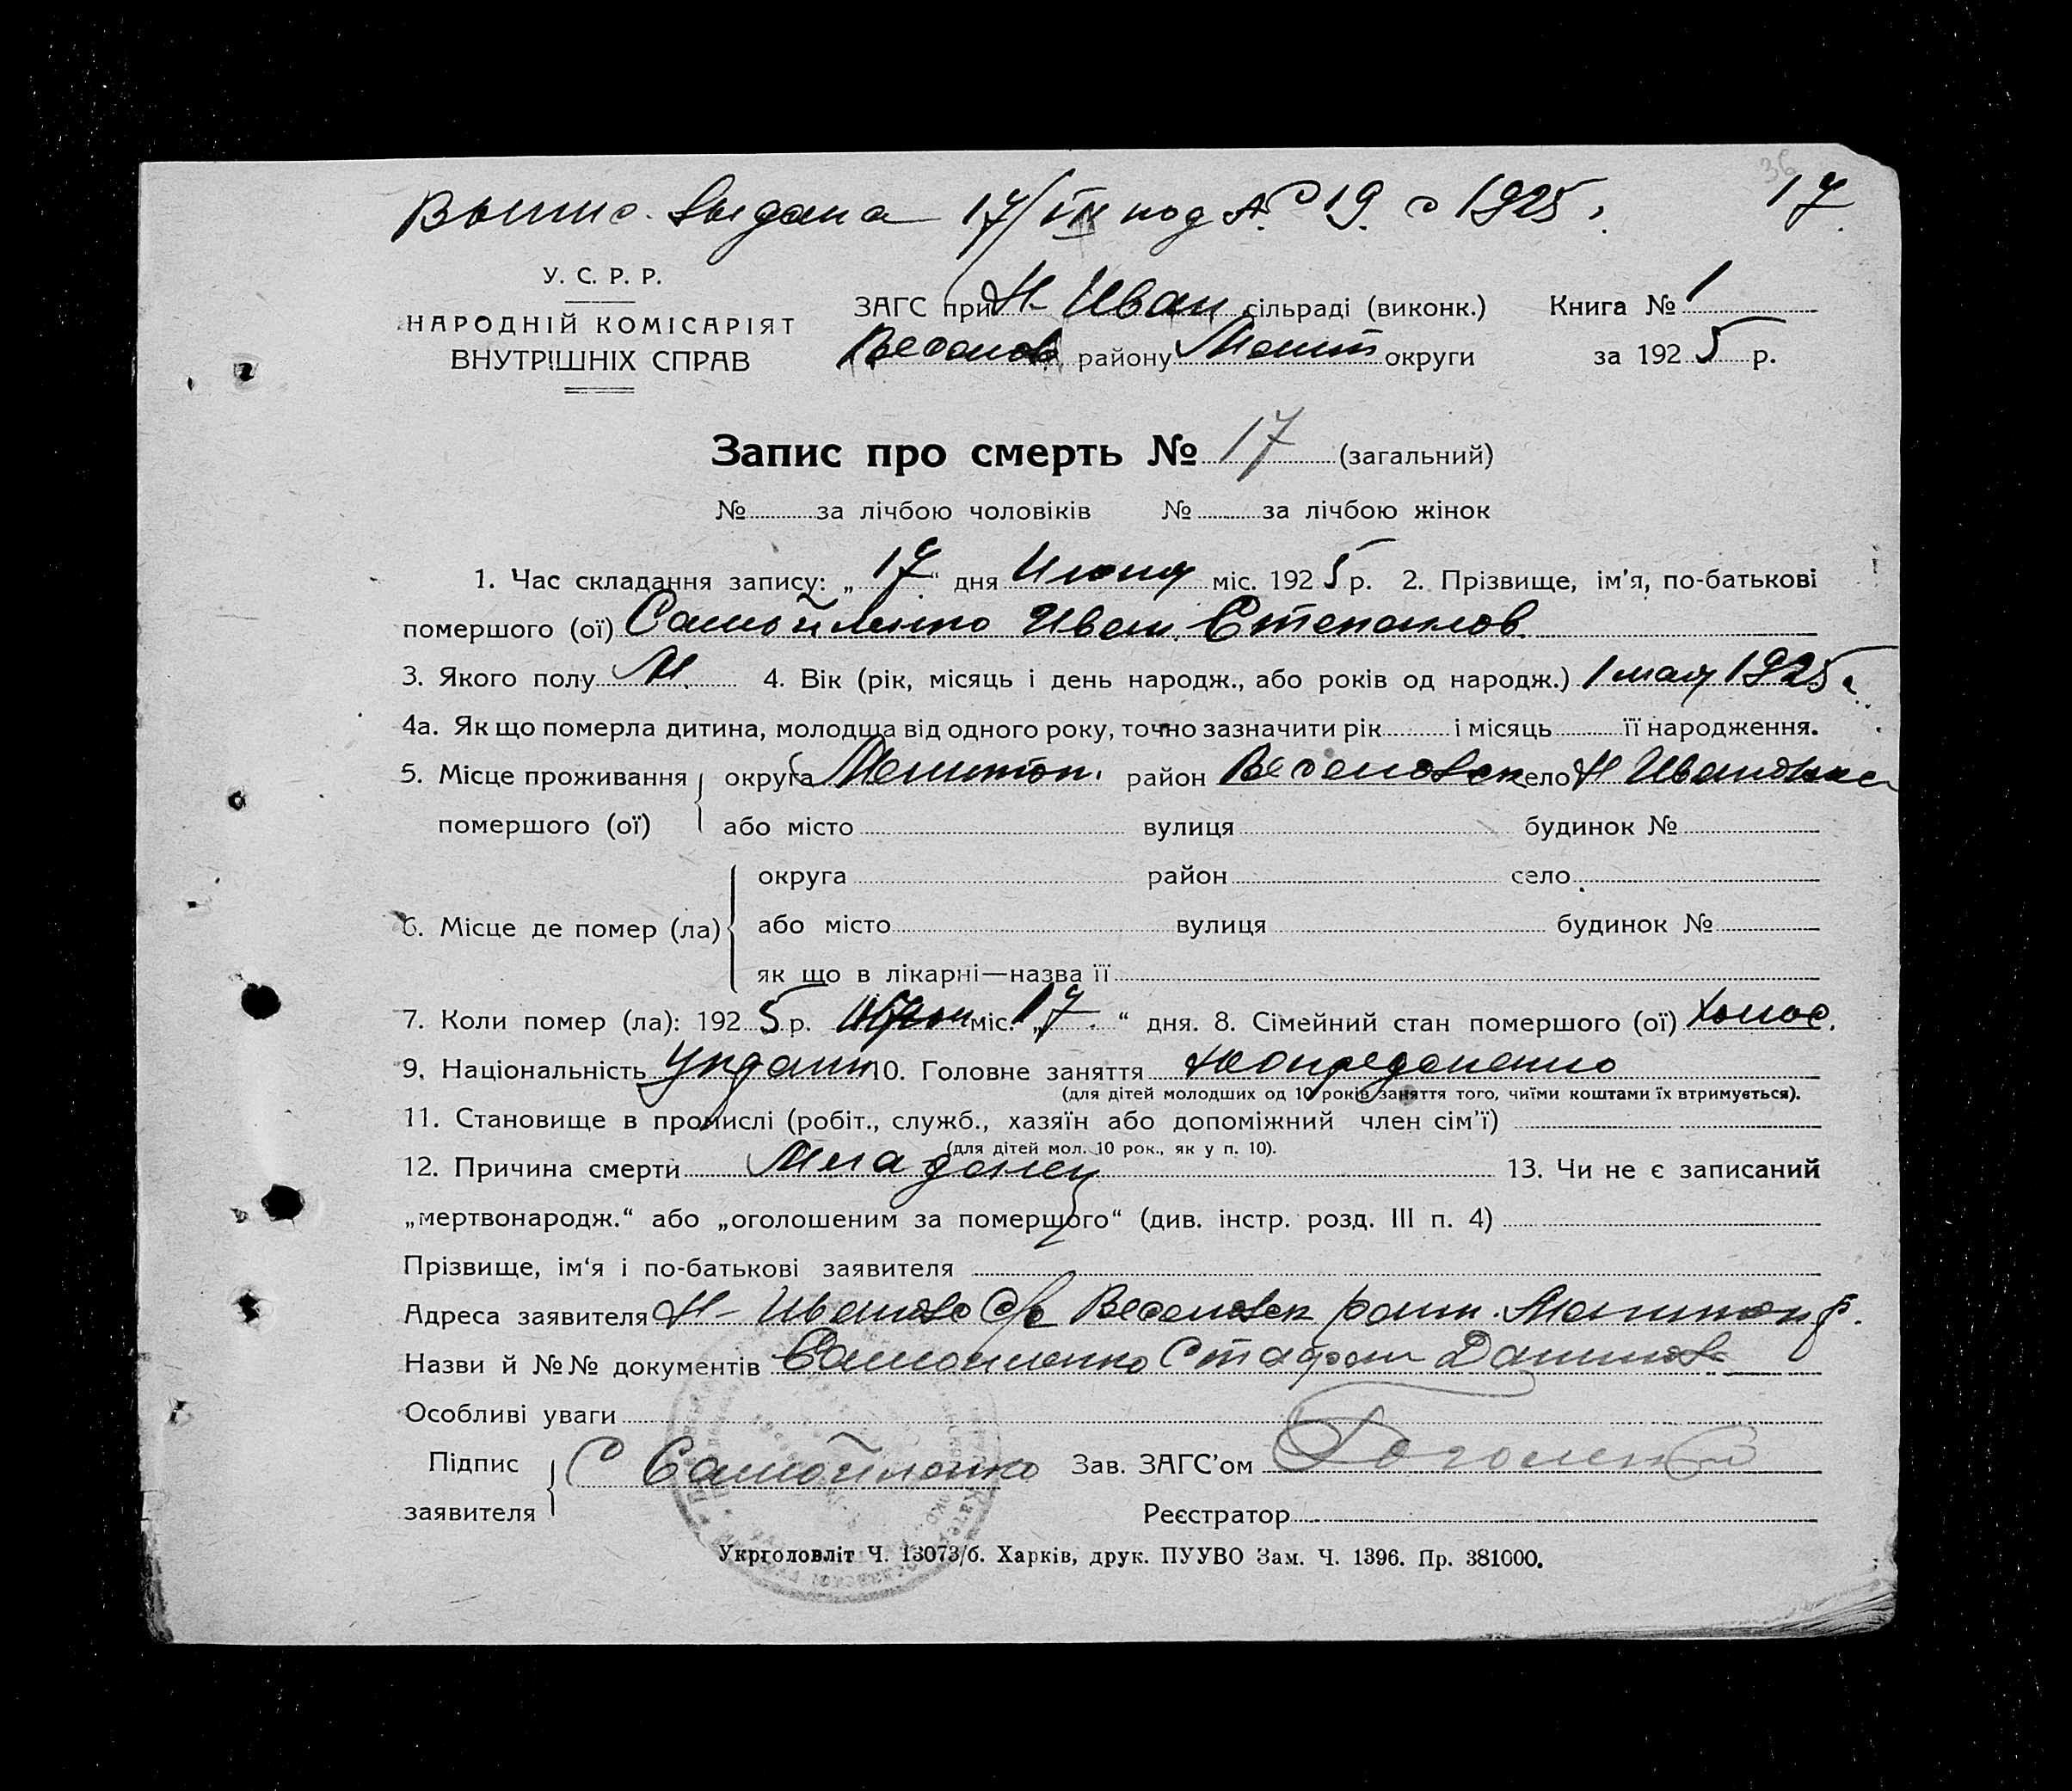 36
Выпис. выдана 17/ под № 19. с 1925 г. 17.
У. С. Р. Р.
НАРОДНІЙ КОМІСАРІЯТ
ВНУТРІШНІХ СПРАВ
ЗАГС при Н-Иван сільраді (виконк.) Книга № 1
Веселов району Мелит округи за 1925 р.
Запис про смерть № 17 (загальний)
№ за лічбою чоловіків № за лічбою жінок
1. Час складання запису: „17“ дня міс. 1925 р. 2. Прізвище, ім'я, по-батькові
помершого (ої) Самойленко Иван Степанов.
3. Якого полу М. 4. Вік (рік, місяць і день народж., або років од народж.) 1 мая 1925 г.
4а. Як що померла дитина, молодща від одного року, точно зазначити рік і місяць її народження.
5. Місце проживання округа Мелитоп. район Веселовск село Н Ивановка
помершого (ої) або місто вулиця будинок №
округа район село
6. Місце де помер (ла) або місто вулиця будинок №
як що в лікарні—назва її
7. Коли помер (ла): 1925 р. міс. „17.“ дня. 8. Сімейний стан помершого (ої) Холос.
9. Національність 10. Головне заняття
(для дітей молодших од 10 років заняття того, чиїми коштами їх втримується).
11. Становище в промислі (робіт., служб., хазяїн або допоміжний член сім'ї)
(для дітей мол. 10 рок., як у п. 10).
12. Причина смерти Младенец 13. Чи не є записаний
„мертвонародж.“ або „оголошеним за померщого“ (див. інстр. розд. III п. 4)
Прізвище, ім'я і по-батькові заявителя
Адреса заявителя Н-Ивановс С/с Веселовск
Назви й №№ документів Самойленко
Особливі уваги
Підпис С Самойленко Зав. ЗАГС'ом
заявителя Реєстратор
Укрголовліт Ч. 13073/б. Харків, друк. ПУУВО Зам. Ч. 1396. Пр. 381000.